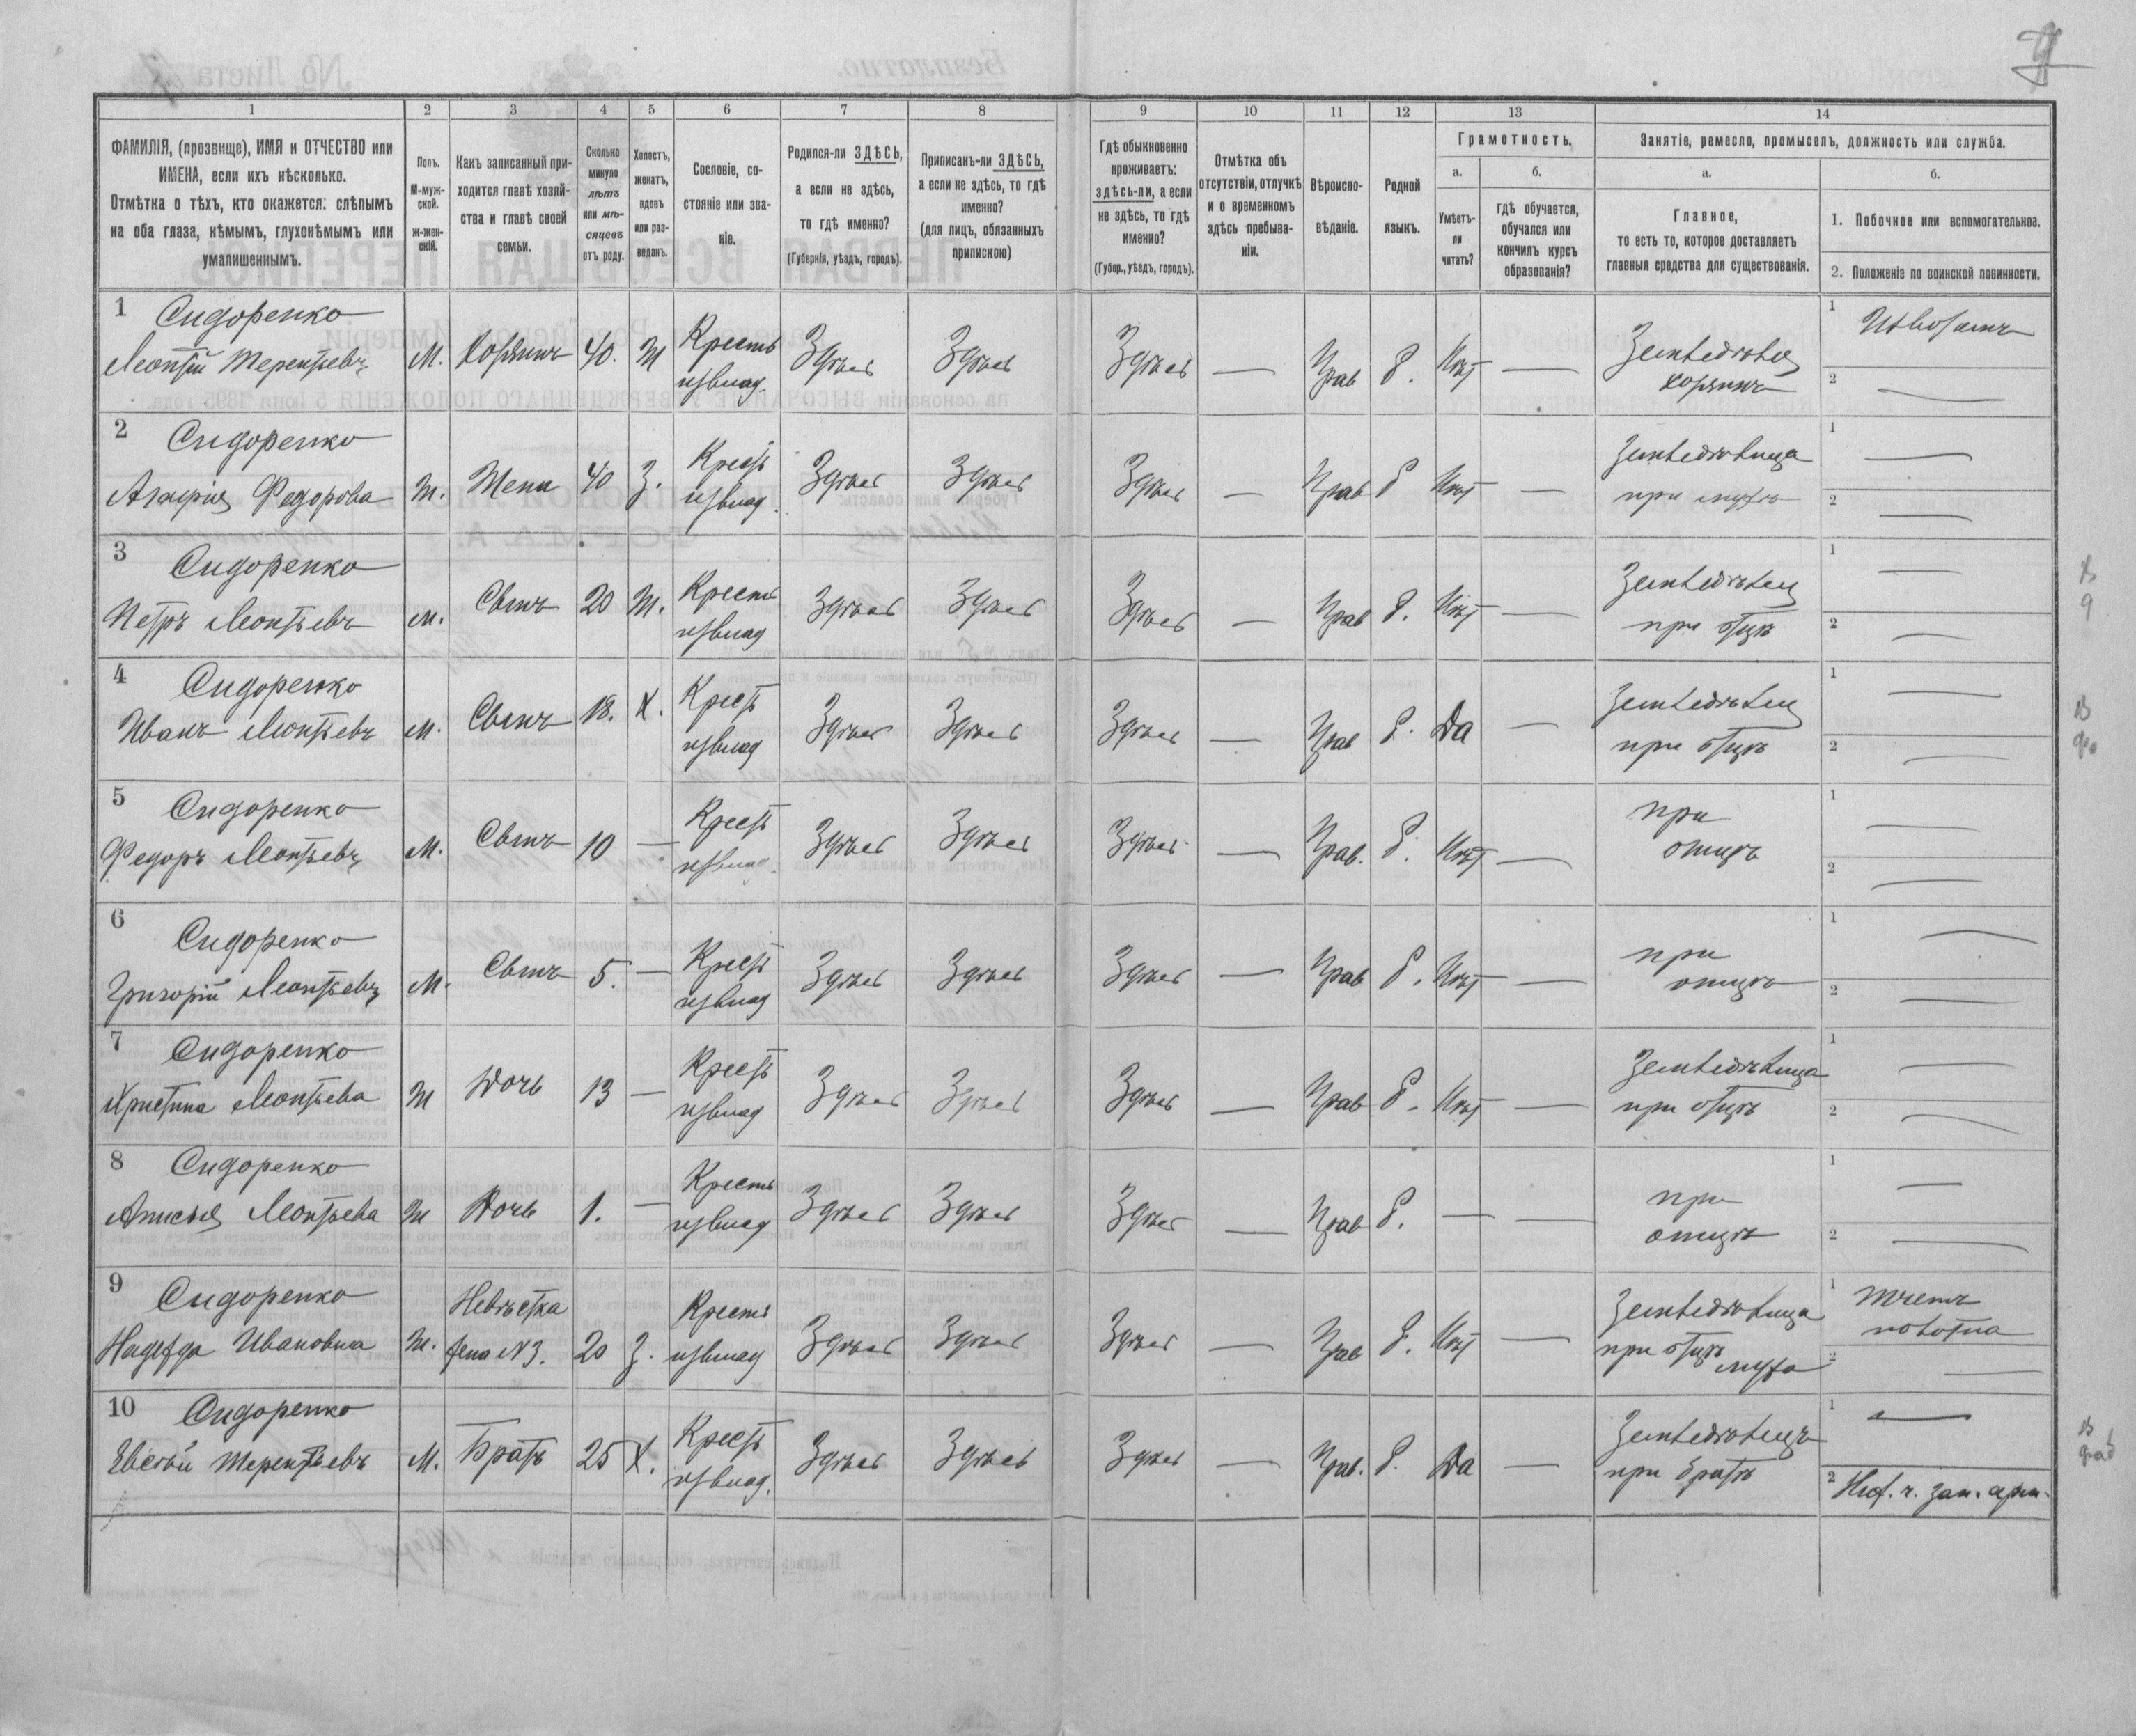 1 2 3 4 5 6 7 8 9 10 11 12 13 14
ФАМИЛІЯ, (прозвище), ИМЯ и ОТЧЕСТВО или
ИМЕНА, если ихъ нѣсколько.
Отмѣтка о тѣхъ, кто окажется: слѣпымъ
на оба глаза, нѣмымъ, глухонѣмымъ или
умалишеннымъ.
Полъ.
М-муж-
ской.
ж-жен-
скій.
Какъ записанный при-
ходится главѣ хозяй-
ства и главѣ своей
семьи.
Сколько
минуло
лѣтъ
или мѣ-
сяцевъ
отъ роду.
Холостъ,
женатъ,
вдовъ
или раз-
веденъ.
Сословіе, со-
стояніе или зва-
ніе.
Родился-ли ЗДѢСЬ,
а если не здѣсь,
то гдѣ именно?
(Губернія, уѣздъ, городъ).
Приписанъ-ли ЗДѢСЬ,
а если не здѣсь, то гдѣ
именно?
(для лицъ, обязанныхъ
припискою)
Гдѣ обыкновенно
проживаетъ:
здѣсь-ли, а если
не здѣсь, то гдѣ
именно?
(Губер., уѣздъ, городъ).
Отмѣтка объ
отсутствіи, отлучкѣ
и о временномъ
здѣсь пребыва-
ніи.
Вѣроиспо-
вѣданіе.
Родной
языкъ.
Грамотность.
а.
Умѣетъ-
ли
читать?
б.
гдѣ обучается,
обучался или
кончилъ курсъ
образованія?
Занятіе, ремесло, промыселъ, должность или служба.
а.
Главное,
то есть то, которое доставляетъ
главныя средства для существованія.
б.
1. Побочное или вспомогательное.
2. Положеніе по воинской повинности.
1 Сидоренко
Леонтій Терентьевъ М. Хозяинъ 40. Ж Крестъ Здѣсь Здѣсь Здѣсь — Прав Р. Нѣтъ — Земледѣлец
хозяинъ
1
2 —
2 Сидоренко
Федорова Ж. Жена 40 З. Крест Здѣсь Здѣсь Здѣсь — Прав Р Нѣт — Земледѣлица
при мужѣ
1 —
2 —
3 Сидоренко
Петръ Леонтьевъ М. Сынъ 20 Ж. Крестъ Здѣсь Здѣсь Здѣсь — Прав Р. Нѣт — Земледѣлец
при отцѣ
1 —
2 —
4 Сидоренко
Иванъ Леонтьевъ М. Сынъ 18. Х. Крест Здѣсь Здѣсь Здѣсь — Прав Р. Да — Земледѣлец
при отцѣ
1 —
2 —
5 Сидоренко
Федоръ Леонтьевъ М. Сынъ 10 — Крест Здѣсь Здѣсь Здѣсь — Прав. Р. Нѣт — при
отцѣ
1 —
2 —
6 Сидоренко
Григорій Леонтьевъ М. Сынъ 5. — Крест Здѣсь Здѣсь Здѣсь — Прав Р. Нѣт — при
отцѣ
1 —
2 —
7 Сидоренко
Христина Леонтьева Ж Дочь 13 — Крест Здѣсь Здѣсь Здѣсь — Прав Р. Нѣт — Земледѣлица
при отцѣ
1 —
2 —
8 Сидоренко
Леонтьева Ж Дочь 1. — Крестъ Здѣсь Здѣсь Здѣсь — Прав Р. — — при
отцѣ
1 —
2 —
9 Сидоренко
Надежда Ивановна Ж. Невѣстка
жена №3. 20 З. Крестъ Здѣсь Здѣсь Здѣсь — Прав Р. Нѣт — Земледѣлица
при отцѣ
мужа
1 Ткетъ
полотна
2 —
10 Сидоренко
Терентьевъ М. Братъ 25 Х. Крест Здѣсь Здѣсь Здѣсь — Прав. Р. Да — Земледѣлецъ
при братѣ
1 —
2 зап. арм.